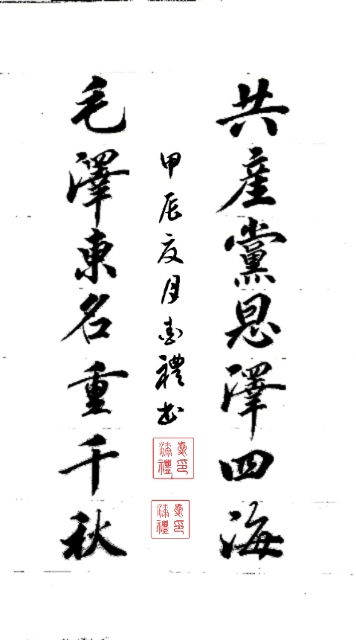 共產黨恩澤四海
毛澤東名重千秋
甲辰夏月
禮書